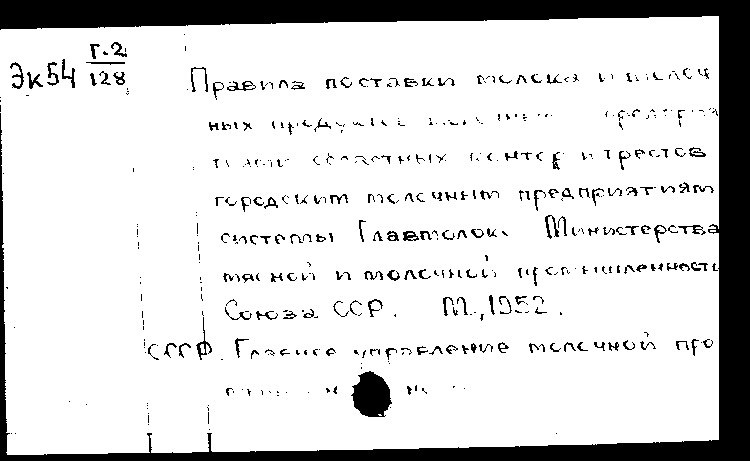 Эк54 Г.2
128
Правила поставки молока и молоч
ных продуктов предприя
тиями областных контор и трестов
городским молочным предприятиям
системы Главмолоко Министерства
мясной и молочной промышленности
Союза ССР. М., 1952.
СССР. Главное управление молочной про